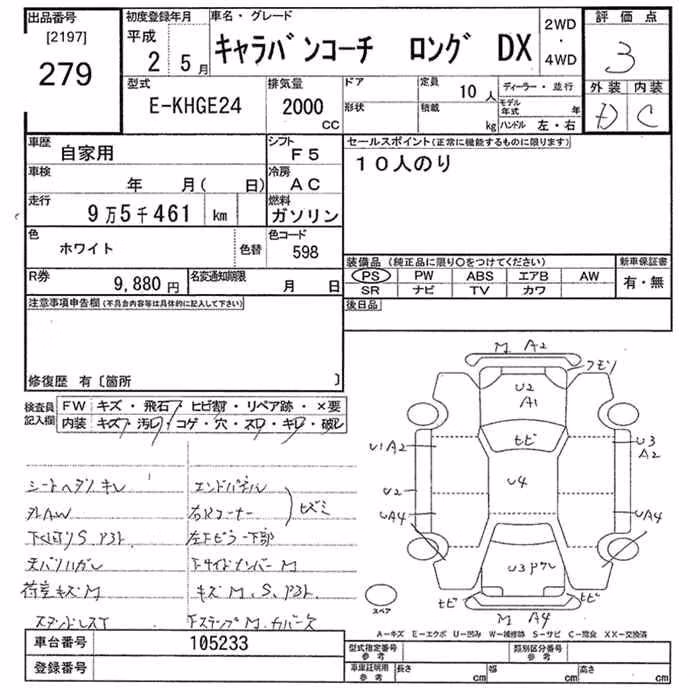 出品番号 初度登録年月 車名・グレード 2WD・4WD 評価点
[2197] 平成
279 2 5月 キャラバンコーチ ロング DX 3
型式 排気量 ドア 定員 ディーラー・並行 外装 内装
E-KHGE24 2000 CC 形状 10人 積載 kg モデル年式 年 ハンドル 左・右 D C
車歴 自家用 シフト F5 セールスポイント(正常に機能するものに限ります)
車検 年 月( 日) 冷房 AC 10人のり
走行 9万5千461 km 燃料 ガソリン
色 ホワイト 色替 色コード 598
装備品(純正品に限り○をつけてください) 新車保証書
R券 9,880円 名変通知期限 月 日 PS PW ABS エアB AW 有・無
SR ナビ TV カワ
注意事項申告欄(不具合内容等は具体的に記入して下さい) 後日品
修復歴 有〔箇所 〕
検査員記入欄 FW キズ・飛石・ヒビ割・リペア跡・×要
内装 キズ・汚レ・コゲ・穴・スレ・キレ・破レ
シートヘタリ キレ エンドパネル
外AW 右Rコーナー ヒズミ
下ｸﾞﾘ S 左下ピラー下部
天バリハガレ 下サイドメンバー M
荷室キズ M キズ M. S.
スタンドレス T 下ステップ M. カバー欠
M A2
クモリ
U2
A1
ヒビ
U1A2 U3
A2
U4
U2
UA4 UA4
U3
ヒビ ヒビ
M A4
スペア
A－キズ E－エクボ U－凹み W－補修跡 S－サビ C－腐食 XX－交換済
車台番号 105233 型式指定番号参考 類別区分番号参考
登録番号 車庫証明用参考 長さ cm 幅 cm 高さ cm